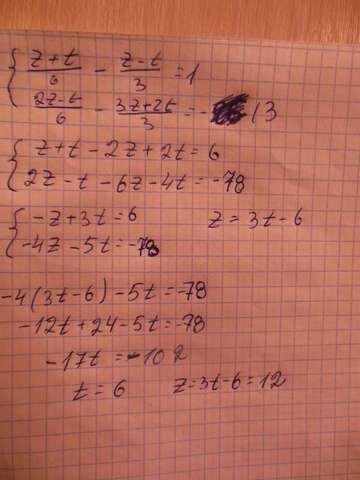 { (z+t)/6 - (z-t)/3 = 1
(2z-t)/6 - (3z+2t)/3 = - 13
{ z+t-2z+2t=6
2z-t-6z-4t=-78
{ -z+3t=6 z=3t-6
-4z-5t=-78
-4(3t-6)-5t=-78
-12t+24-5t=-78
-17t=-102
t=6 z=3t-6=12